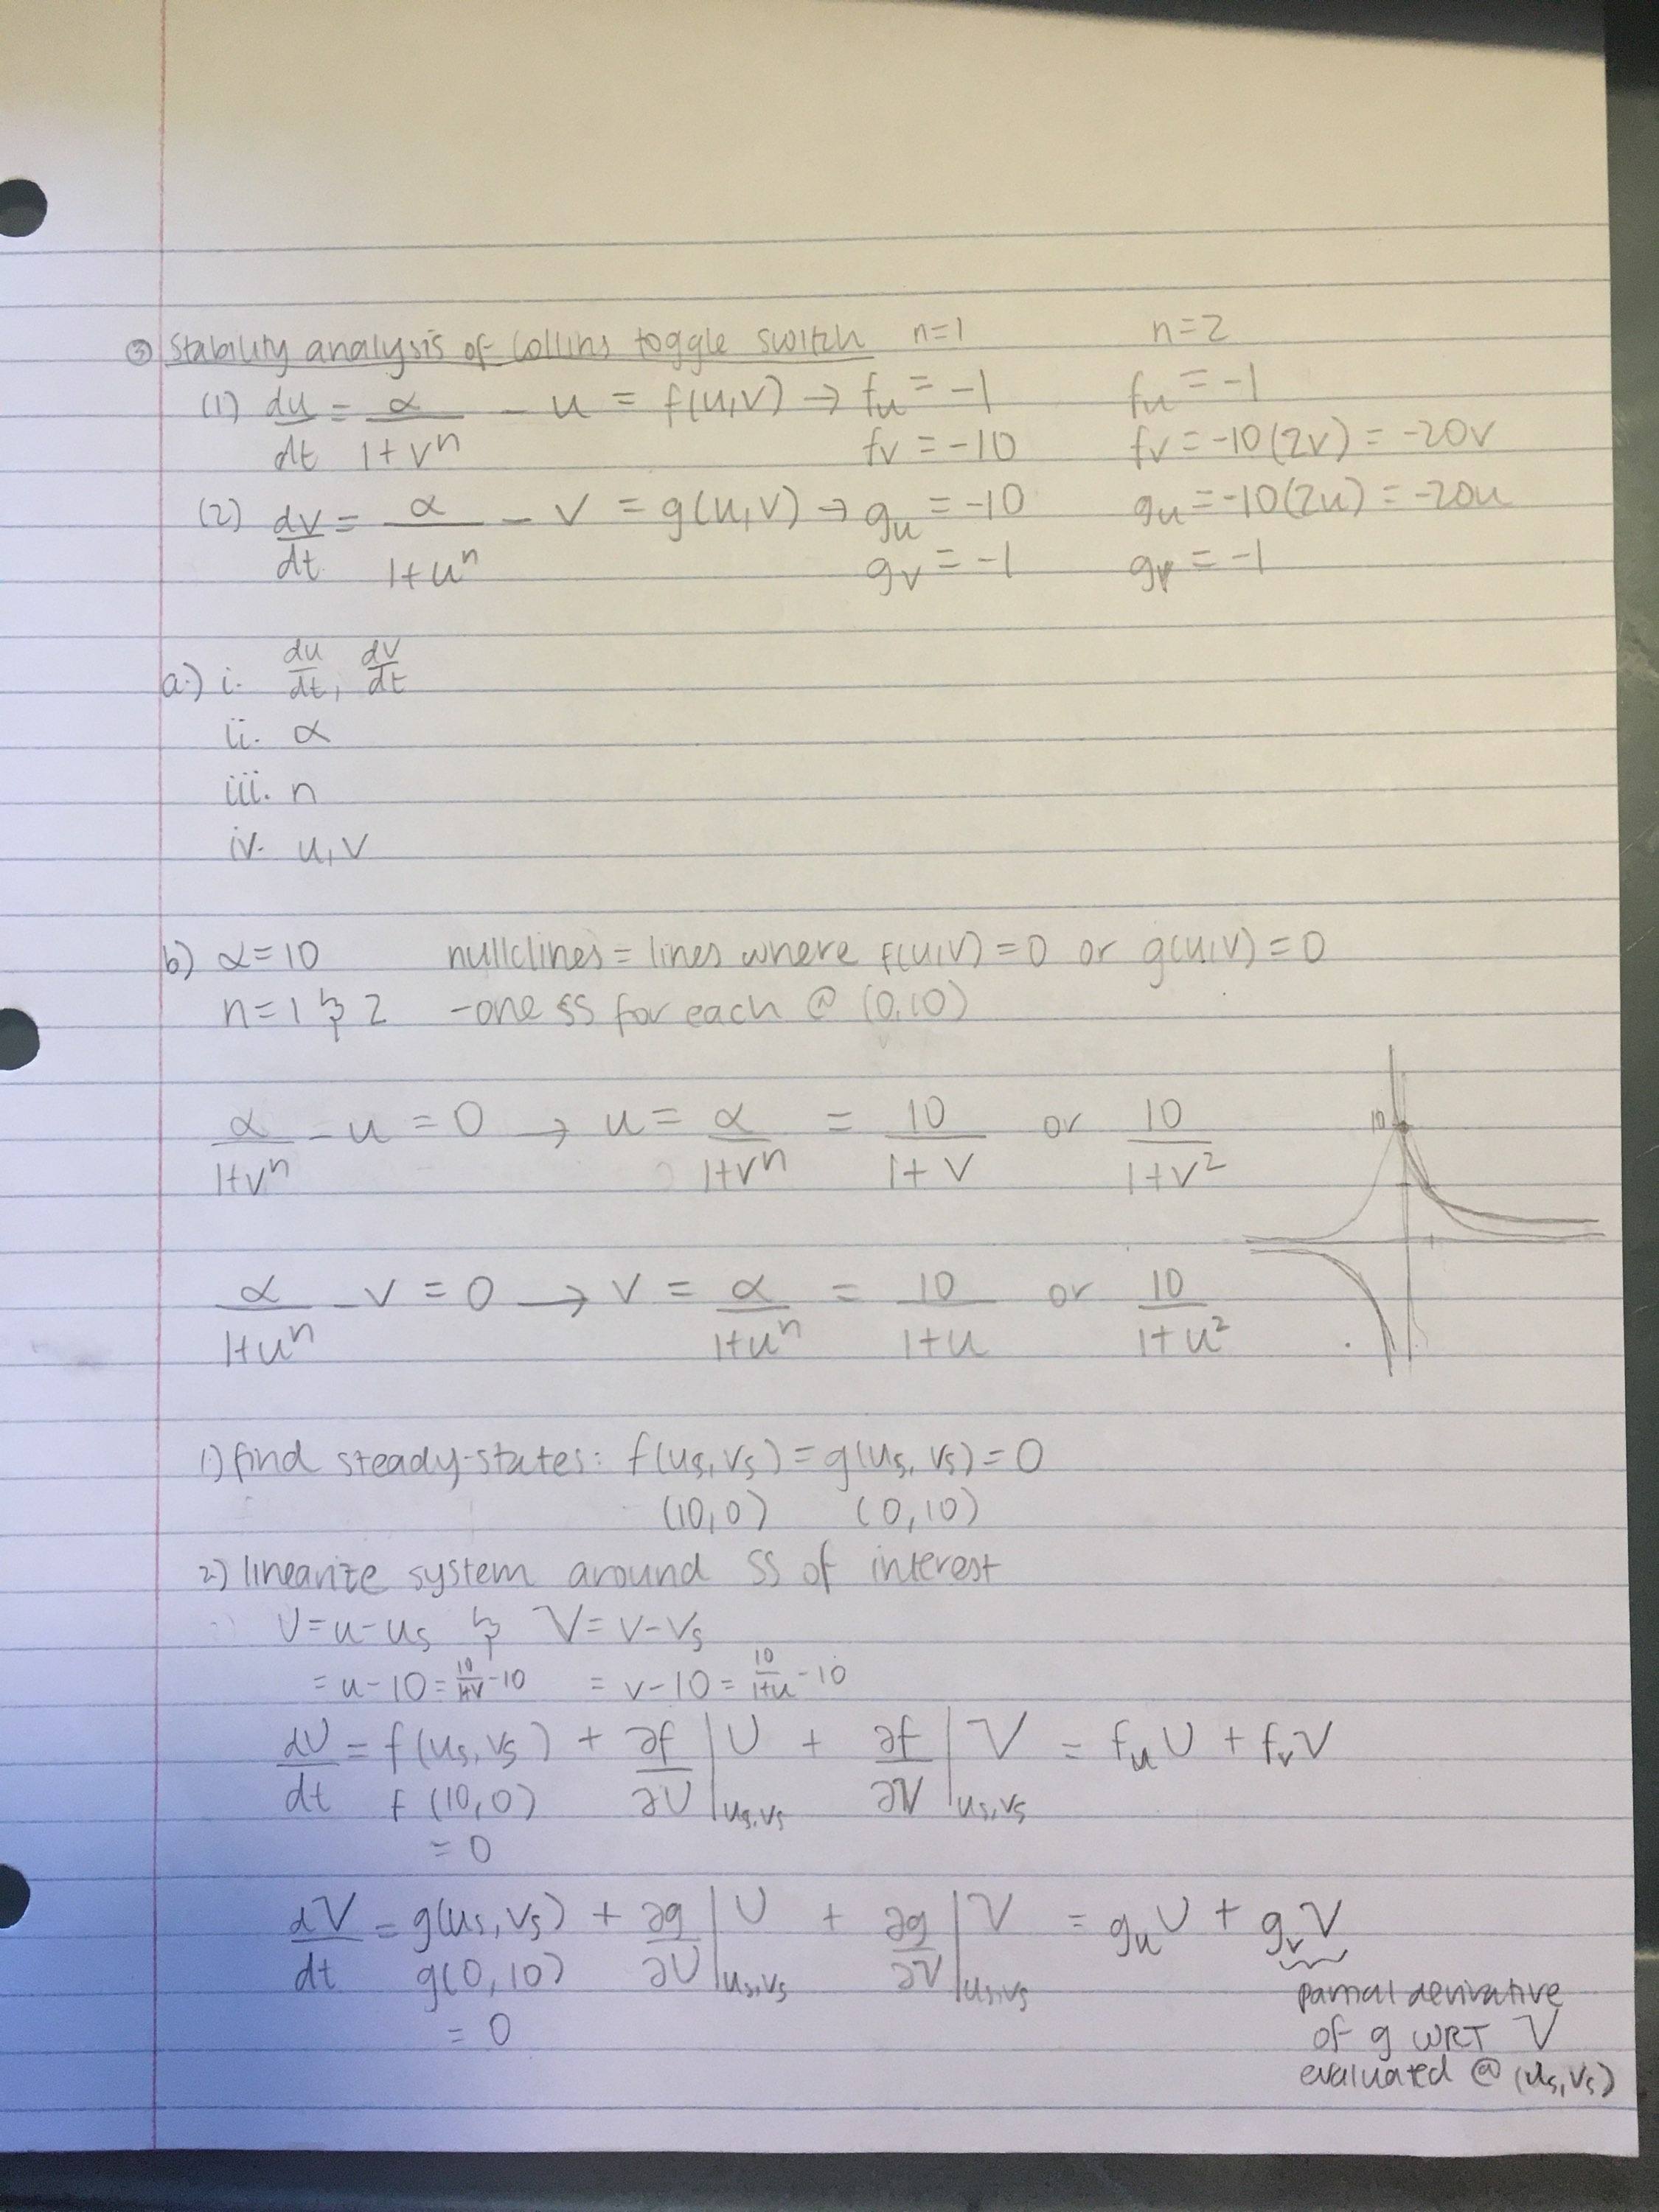 ③ Stability analysis of Collins toggle switch n=1 n=2
(1) du/dt = α/(1+vⁿ) - u = f(u,v) → fu = -1 fu = -1
fv = -10 fv = -10(2v) = -20v
(2) dv/dt = α/(1+uⁿ) - v = g(u,v) → gu = -10 gu = -10(2u) = -20u
gv = -1 gv = -1
a.) i. du/dt, dv/dt
ii. α
iii. n
iv. u,v
b) α=10 nullclines = lines where f(u,v)=0 or g(u,v)=0
n=1 & 2 -one ss for each @ (0,10)
10
α/(1+vⁿ) - u = 0 → u = α/(1+vⁿ) = 10/(1+v) or 10/(1+v²)
α/(1+uⁿ) - v = 0 → v = α/(1+uⁿ) = 10/(1+u) or 10/(1+u²)
1) find steady-states: f(us,vs) = g(us,vs) = 0
(10,0) (0,10)
2) linearize system around SS of interest
U = u-us & V = v-vs
= u-10 = 10/(1+v) -10 = v-10 = 10/(1+u) -10
dU/dt = f(us,vs) + ∂f/∂U|us,vs U + ∂f/∂V|us,vs V = fuU + fvV
f(10,0)
= 0
dV/dt = g(us,vs) + ∂g/∂U|us,vs U + ∂g/∂V|us,vs V = guU + gvV
g(0,10)
= 0
partial derivative
of g WRT V
evaluated @ (us,vs)